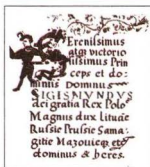 Erenissimus
atqȝ victorio
sissimus Prin
ceps et do:
minus Dominus
SIGISMVNDVS
dei gratia Rex Polo
Magnus dux Lituaie
Russie Prussie Sama:
gitie Mazouieqȝ etc
dominus & heres.